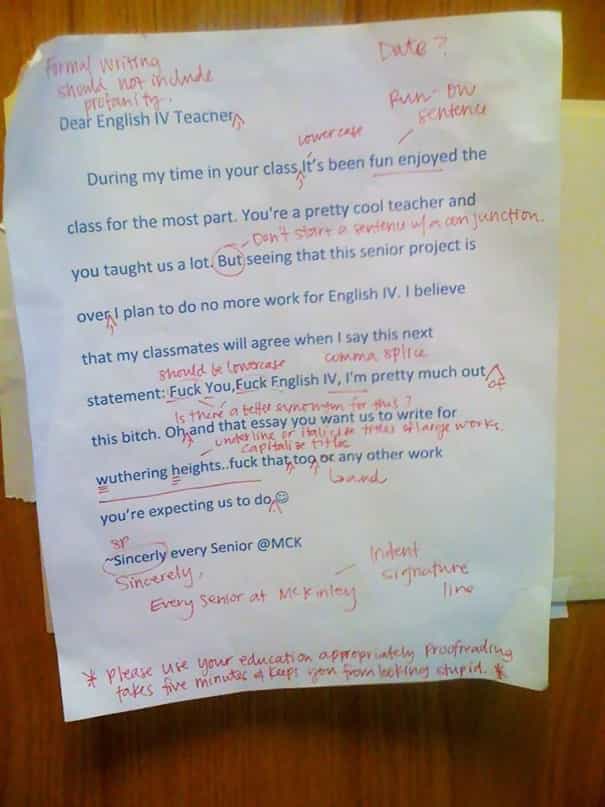 Formal Writing
should not include
profanity.
Date?
Run-on
sentence
Dear English IV Teacher
lowercase
During my time in your class,It's been fun enjoyed the
class for the most part. You're a pretty cool teacher and
Don't start a sentence w/ a conjunction.
you taught us a lot. But seeing that this senior project is
over I plan to do no more work for English IV. I believe
that my classmates will agree when I say this next
should be lowercase
comma splice
statement: Fuck You,Fuck English IV, I'm pretty much out
of
Is there a better synonym for this?
this bitch. Oh and that essay you want us to write for
underline or italicize titles of large works.
capitalize titles
wuthering heights..fuck that too or any other work
and
you're expecting us to do☺
sp
~Sincerly every Senior @MCK
Sincerely,
Every Senior at McKinley
Indent
signature
line
* Please use your education appropriately. Proofreading
takes five minutes & keeps you from looking stupid. *